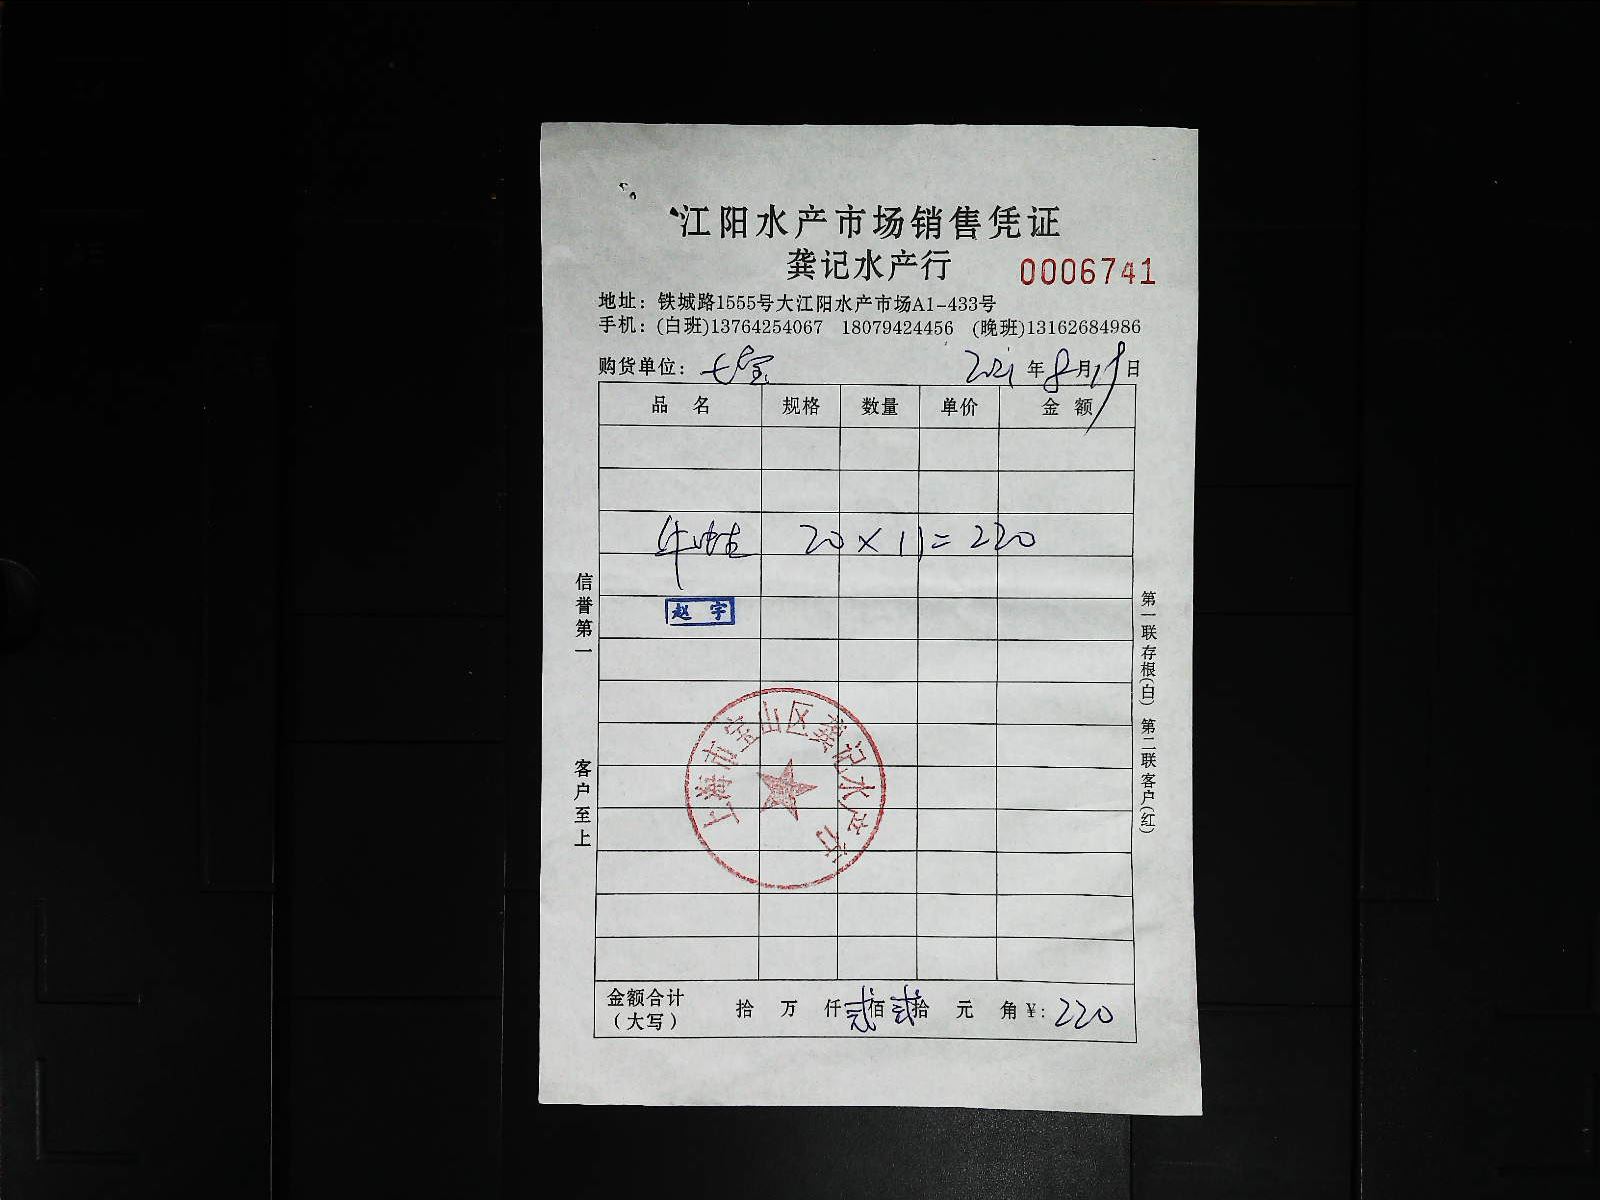 江阳水产市场销售凭证
龚记水产行 0006741
地址：铁城路1555号大江阳水产市场A1-433号
手机：(白班)13764254067 18079424456 (晚班)13162684986
购货单位：七宝 2021年8月19日
品 名 规格 数量 单价 金 额
牛蛙 20×11=220
赵 宇
信誉第一 客户至上
第一联存根(白) 第二联客户(红)
上海市宝山区龚记水产行
金额合计 拾 万 仟贰佰贰拾 元 角¥:220
（大写）